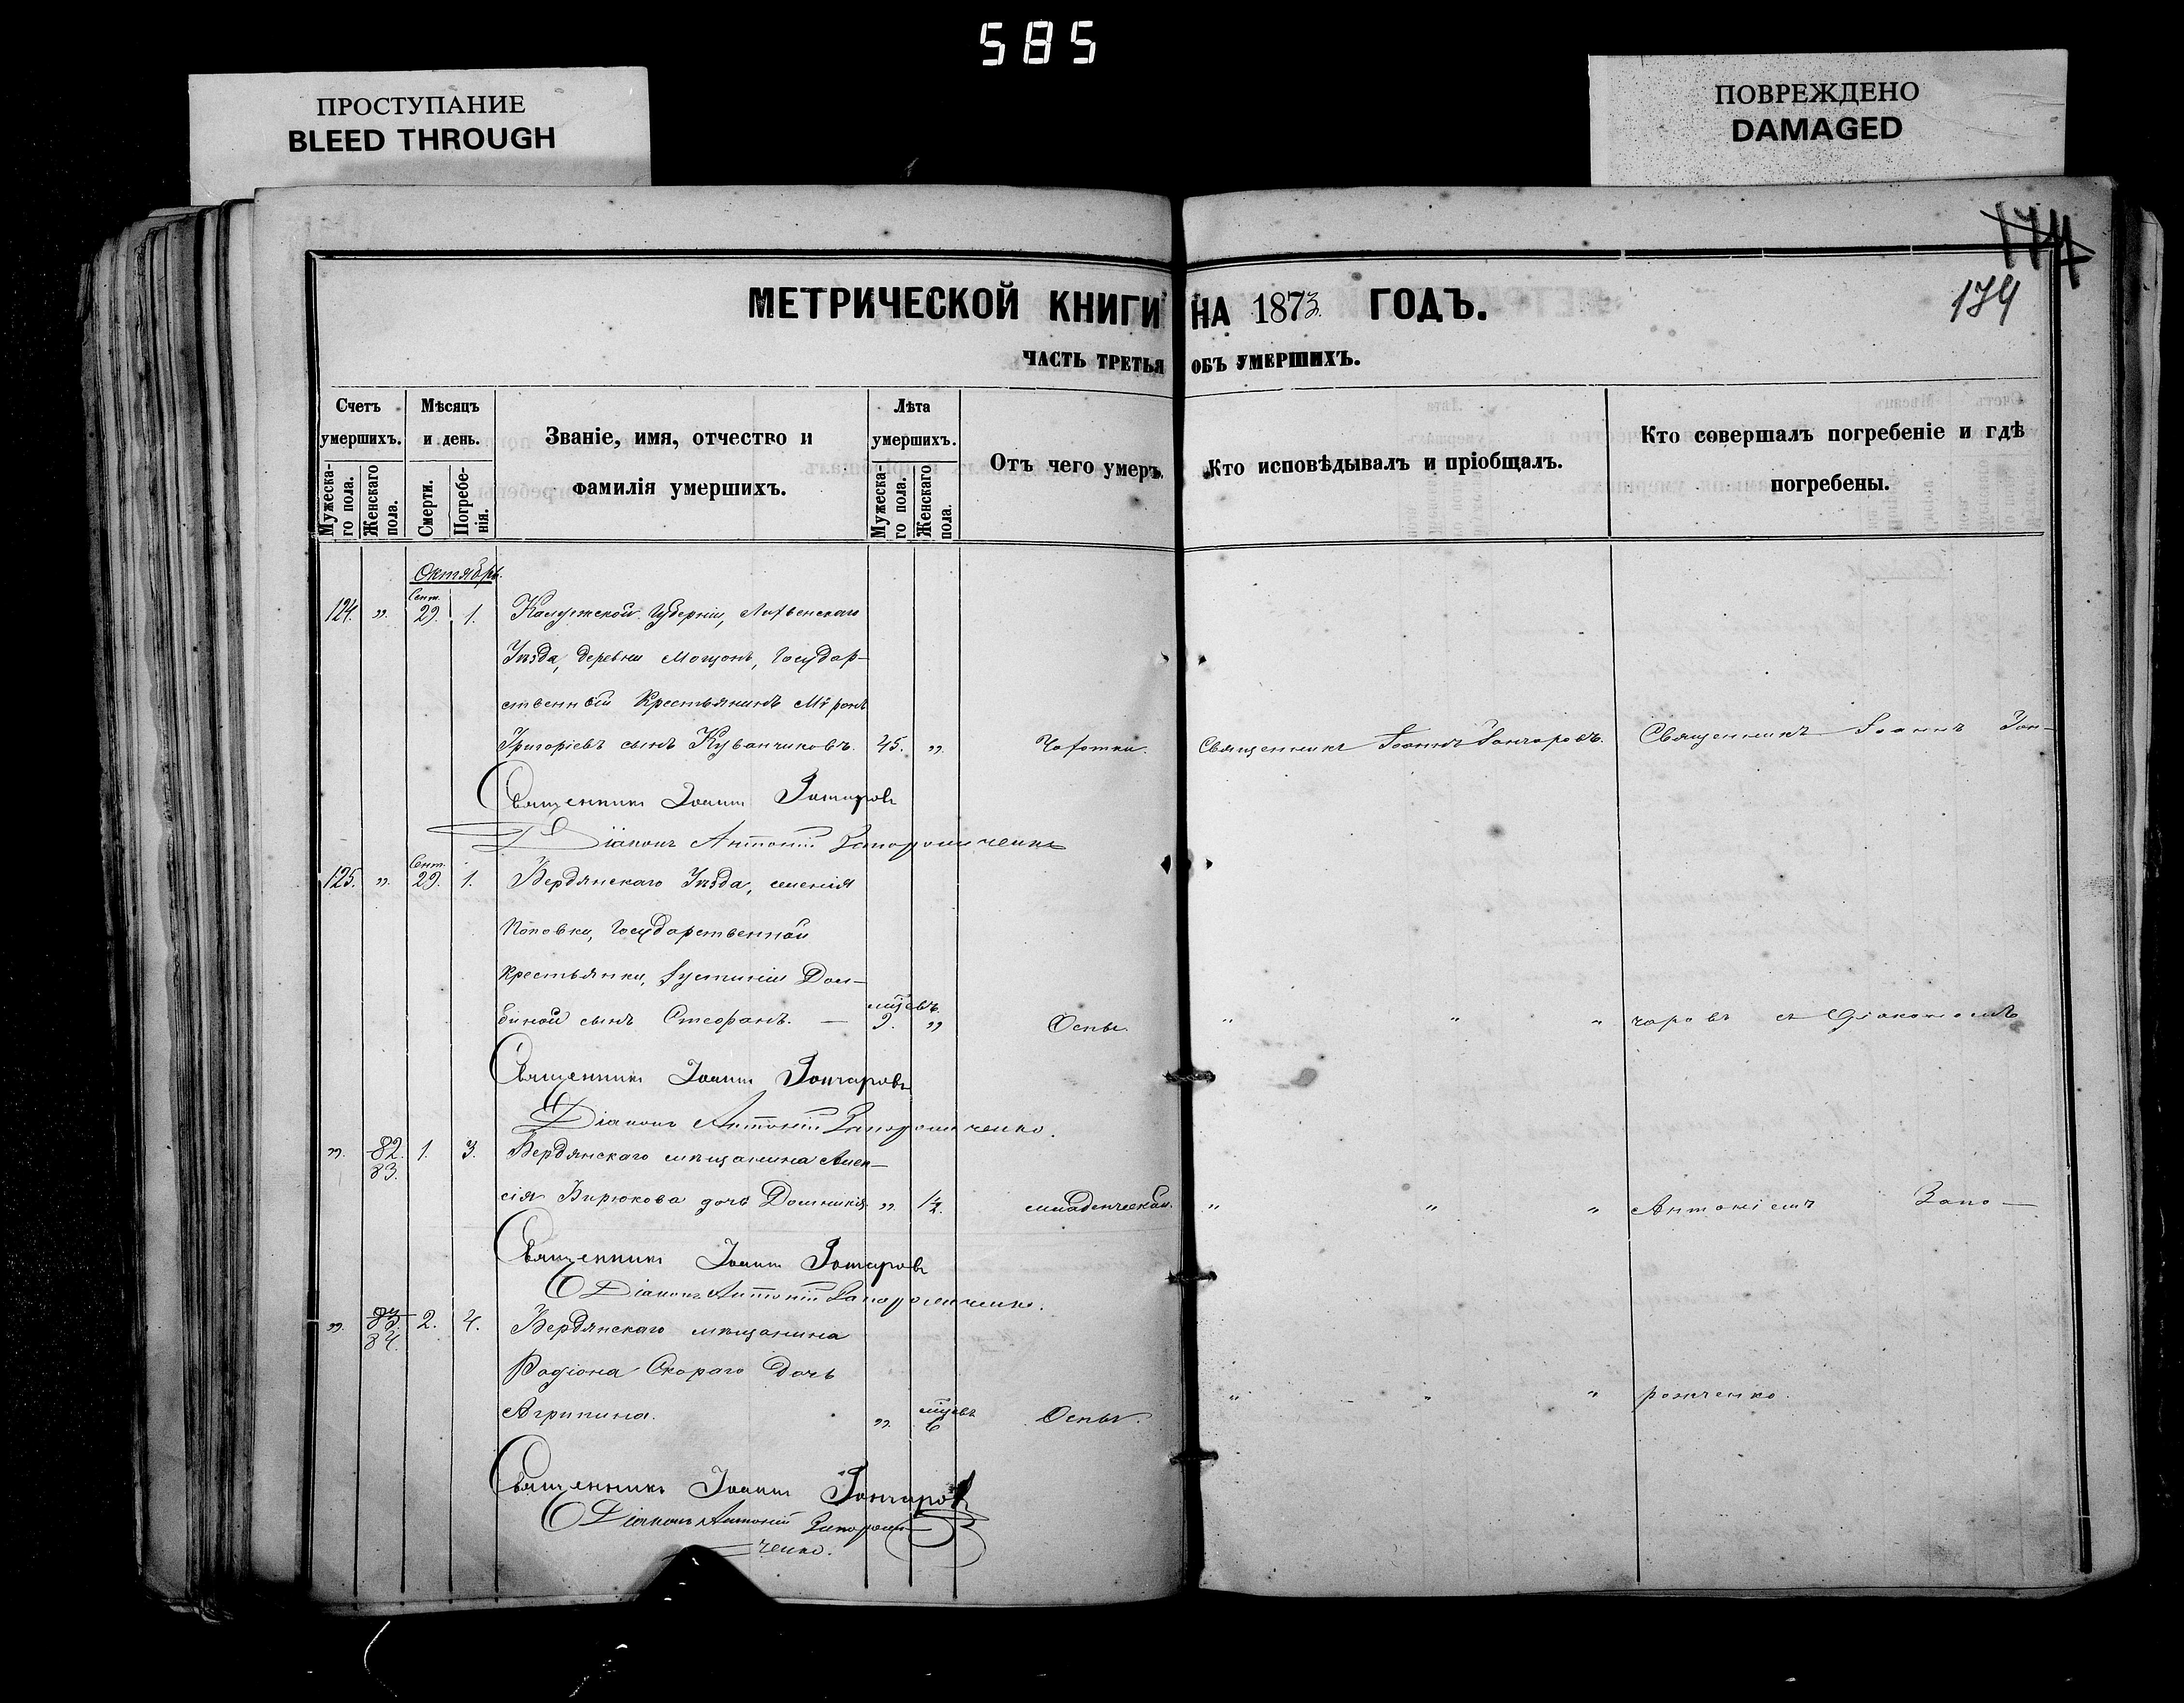 585
ПРОСТУПАНИЕ
BLEED THROUGH
ПОВРЕЖДЕНО
DAMAGED
174
174
МЕТРИЧЕСКОЙ КНИГИ НА 1873 ГОДЪ.
ЧАСТЬ ТРЕТЬЯ ОБЪ УМЕРШИХЪ.
Счетъ умершихъ.
Мужеска-
го пола.
Женскаго
пола.
Мѣсяцъ
и день.
Смерти.
Погребе-
нія.
Званіе, имя, отчество и
фамилія умершихъ.
Лѣта
умершихъ.
Мужеска-
го пола.
Женскаго
пола.
Отъ чего умеръ.
Кто исповѣдывалъ и пріобщалъ.
Кто совершалъ погребеніе и гдѣ
погребены.
Октябрь.
124. „ Сент. 29. 1. Калужской Губерніи, Лихвенскаго
Уѣзда, деревни Мощонъ, Государ-
ственный Крестьянинъ Мѵронъ
Григоріевъ сынъ Куванчиковъ. 45. „ Чахотки. Священникъ Іоаннъ Гончаровъ. Священникъ Іоаннъ Гон-
Священникъ Іоаннъ Гончаровъ
Діаконъ Антоній Запорожченко
125. „ Сент. 29. 1. Бердянскаго Уѣзда, селенія
Поповки, Государственной
Крестьянки, Іустиніи Дом-
биной сынъ Стефанъ. — мѣсяцъ 9. „ Оспы. „ „ „ чаровъ съ Діакономъ
Священникъ Іоаннъ Гончаровъ
Діаконъ Антоній Запорожченко.
„ 82. 83. 1. 3. Бердянскаго мѣщанина Алек-
сія Бирюкова дочь Домникія „ 1/2. младенческой. „ „ „ Антоніемъ Запо-
Священникъ Іоаннъ Гончаровъ
Діаконъ Антоній Запорожченко.
„ 83. 84. 2. 4. Бердянскаго мѣщанина
Родіона Скораго дочь
Агрипина. „ мѣсяцъ 6 Оспы. „ „ „ рожченко.
Священникъ Іоаннъ Гончаровъ
Діаконъ Антоній Запорож-
ченко.